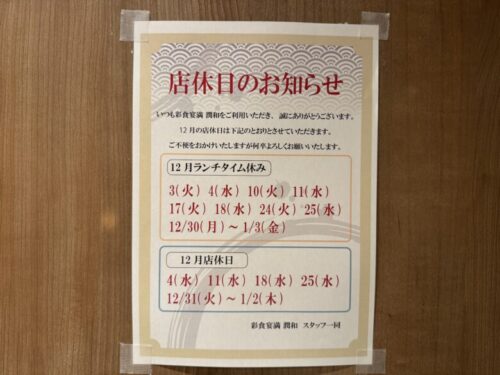 店休日のお知らせ
いつも彩食宴満 潤和をご利用いただき、誠にありがとうございます。
12月の店休日は下記のとおりとさせていただきます。
ご不便をおかけいたしますが何卒よろしくお願いいたします。
12月ランチタイム休み
3(火) 4(水) 10(火) 11(水)
17(火) 18(水) 24(火) 25(水)
12/30(月)～1/3(金)
12月店休日
4(水) 11(水) 18(水) 25(水)
12/31(火)～1/2(木)
彩食宴満 潤和 スタッフ一同